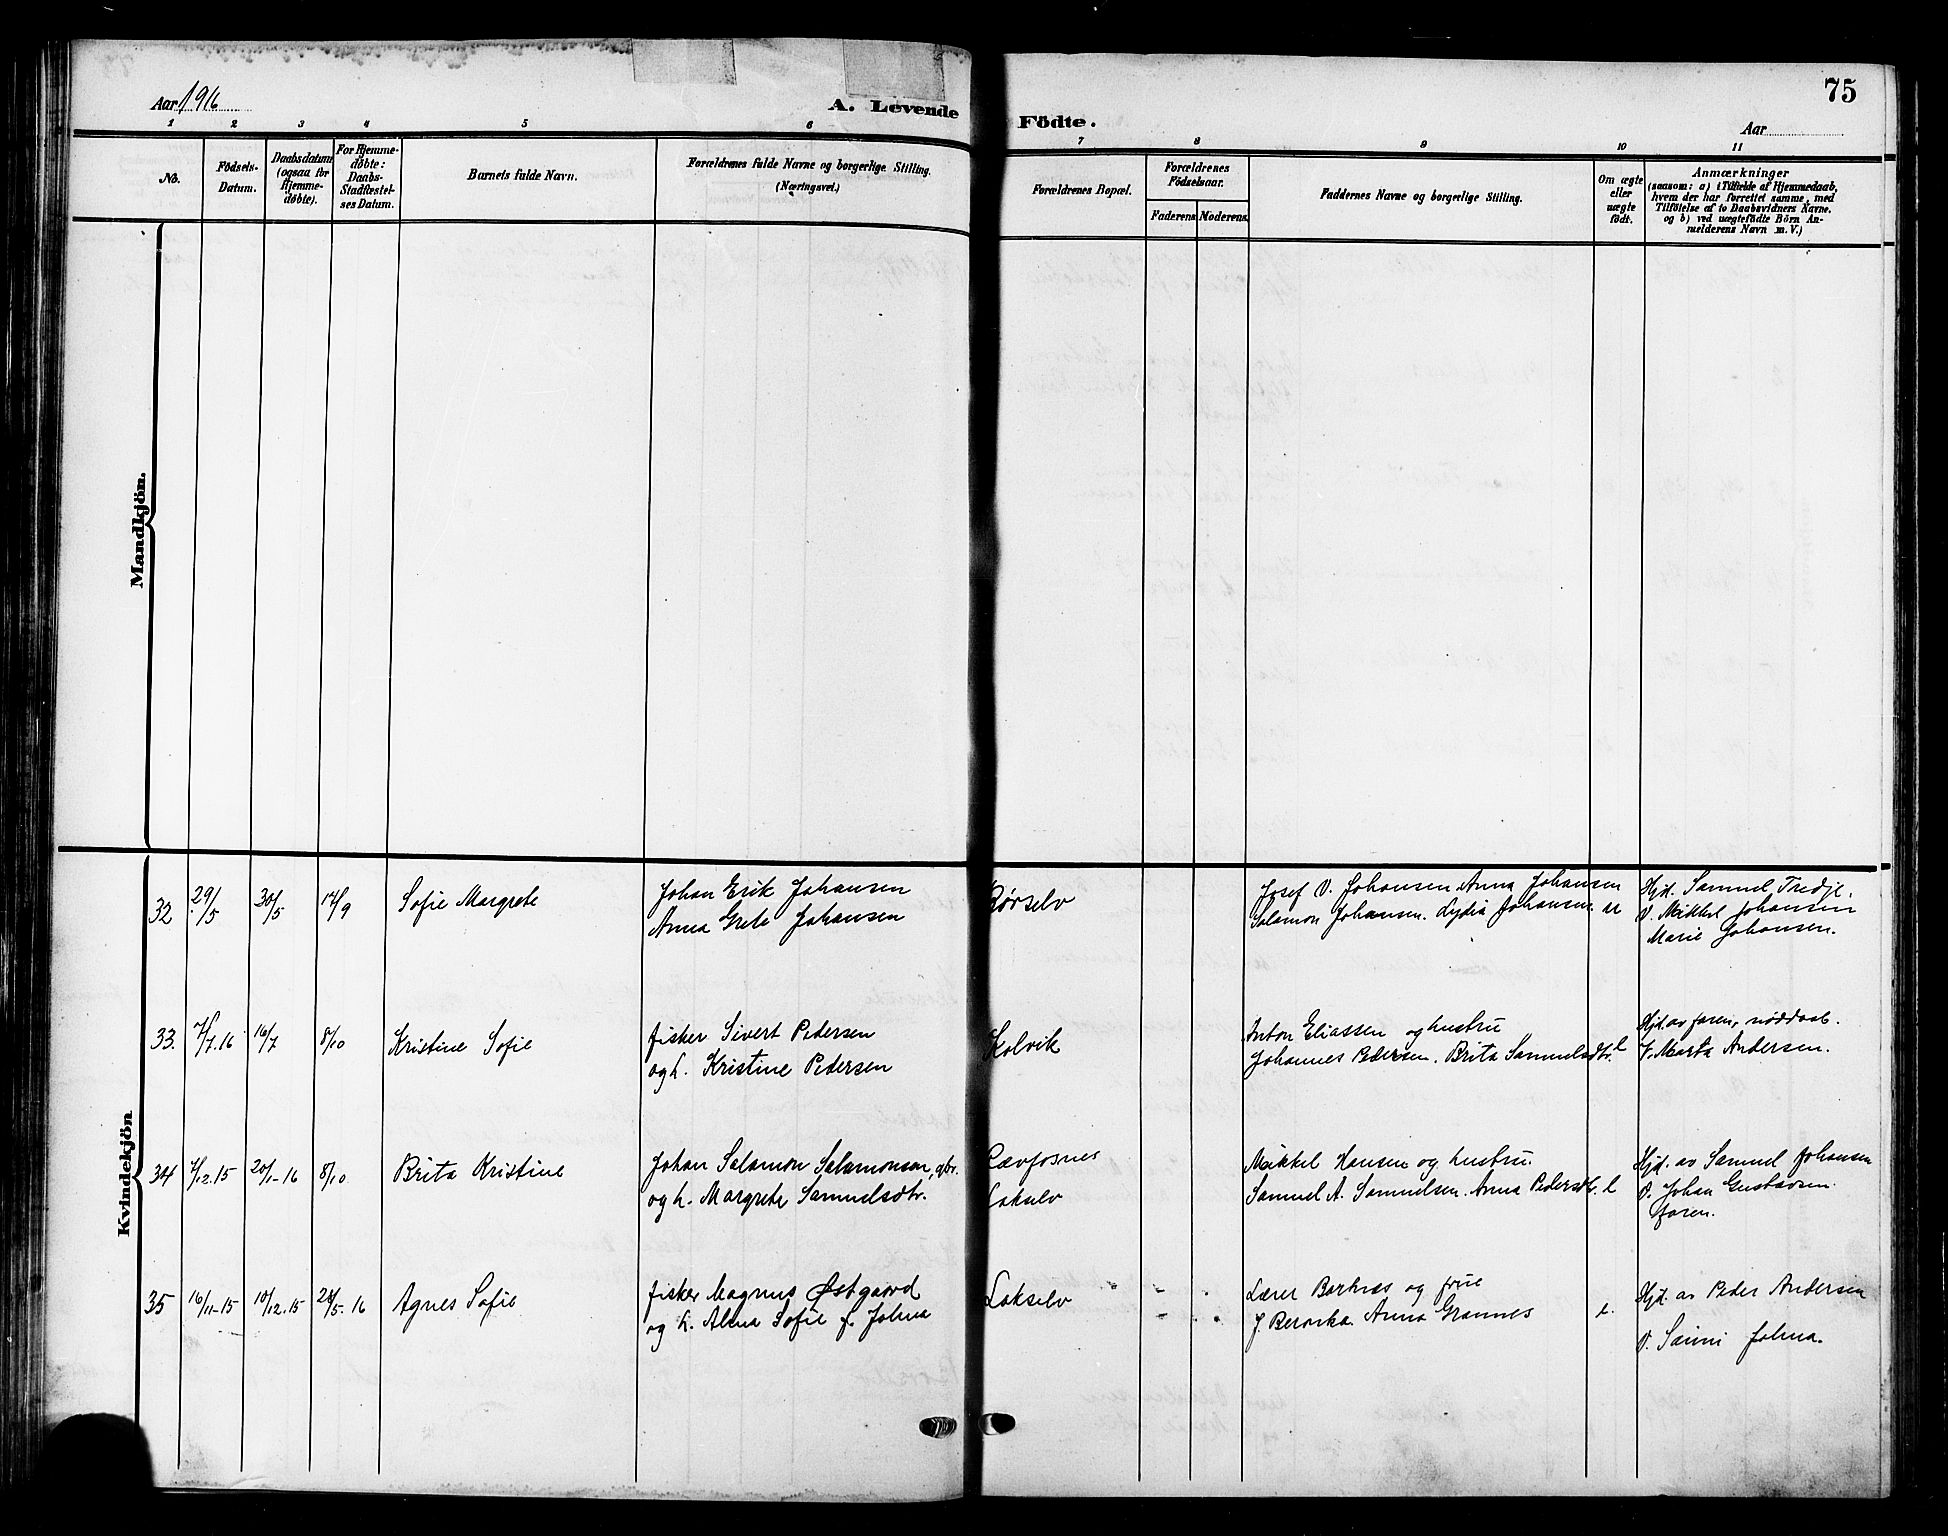 Aar 1916
A. Levende
Födte.
75
Aar
1 2 3 4 5 6 7 8 9 10 11
No.
Födsels-
Datum.
Daabsdatum
(ogsaa for
Hjemme-
døbte).
For Hjemme-
døbte:
Daabs-
Stadfæstel-
ses Datum.
Barnets fulde Navn.
Forældrenes fulde Navne og borgerlige Stilling.
(Næringsvei.)
Forældrenes Bopæl.
Forældrenes
Födselsaar.
Faderens Moderens
Faddernes Navne og borgerlige Stilling.
Om ægte
eller
uægte
født.
Anmærkninger
(saasom: a) i Tilfælde af Hjemmedaab,
hvem der har forrettet samme, med
Tilföielse af to Daabsvidners Navne.
og b) ved uægtefødte Börn An-
melderens Navn m. V.)
Mandkjön.
Kvindekjön
32 29/5 30/5 17/9 Sofie Margrete Johan Erik Johansen Børselv Josef V. Johansen Anna Johansen Hjd. Samuel Tredje.
Anna Grete Johansen Salamon Johansen. Lydia Johansen. V. Mikkel Johansen
Marie Johansen.
33. 7/7.16 16/7 8/10 Kristine Sofie fisker Sivert Pedersen Kolvik Anton Eliassen og hustru Hjd. av faren, nøddaab.
og h. Kristine Pedersen Johannes Pedersen. Brita Samuelsdtr. V. Marta Andersen.
34 7/12.15 20/1-16 8/10 Brita Kristine Johan Salamon Salamonsen, gbr. Rævfosnes Mikkel Hansen og hustru. Hjd. av Samuel Johansen
og h. Margrete Samuelsdtr. Lakselv Samuel A. Samuelsen. Anna Pedersdtr. V. Johan Gustavsen.
faren.
35 16/11-15 10/12.15 28/5.16 Agnes Sofie fisker Magnus Østgaard Lakselv Lærer Barknes og frue Hjd. av Peder Andersen
og h. Alma Sofie f. Jolma J. Beronka. Anna Grannes V. Sanni Jolma.